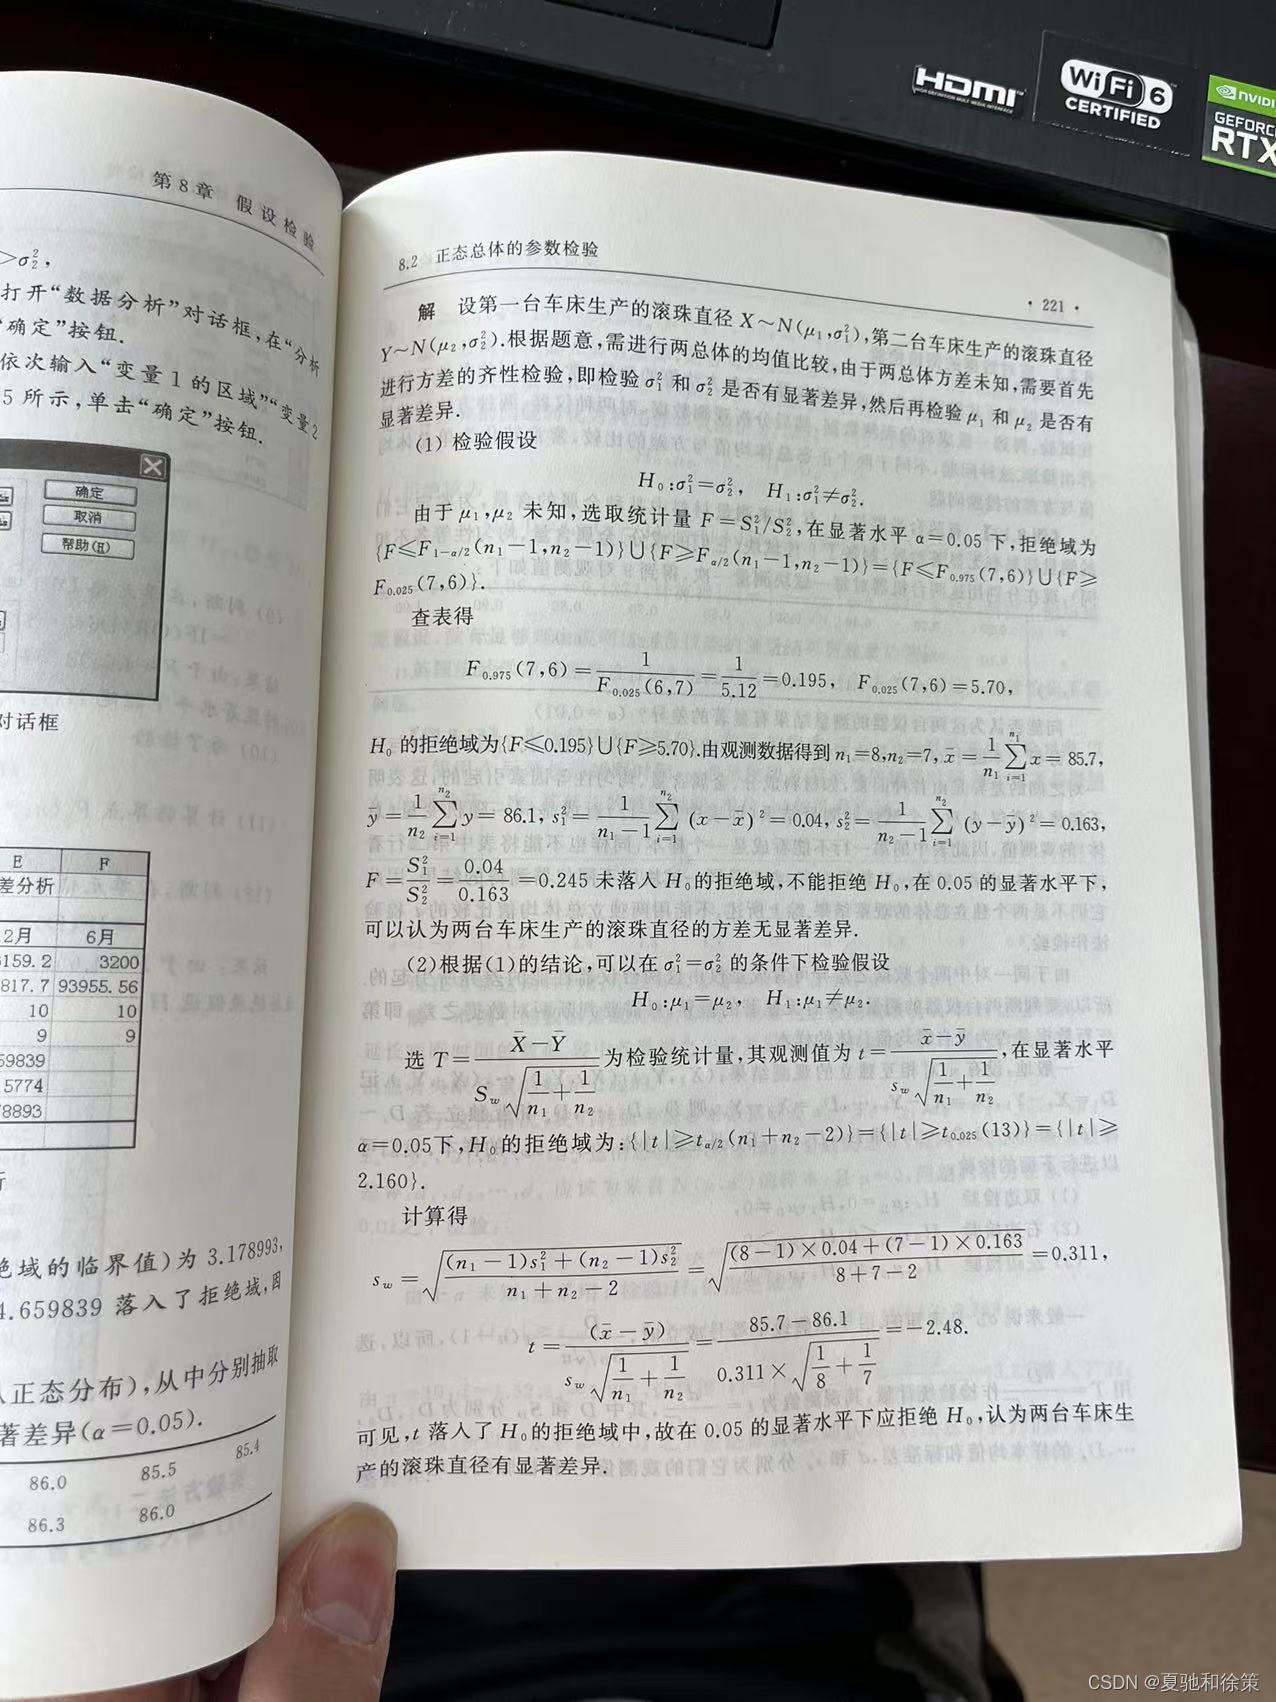 HDMI
HIGH-DEFINITION MULTIMEDIA INTERFACE
WiFi 6
CERTIFIED
NVIDI
GEFORC
RTX
第8章 假设检验
>σ₂²,
打开“数据分析”对话框,在“分析
“确定”按钮.
依次输入“变量1的区域”“变量2
5所示,单击“确定”按钮.
确定
取消
帮助(H)
对话框
E F
差分析
2月 6月
159.2 3200
817.7 93955.56
10 10
9 9
59839
5774
78893
析
绝域的临界值)为 3.178993,
4.659839 落入了拒绝域,因
从正态分布),从中分别抽取
著差异(α=0.05).
86.0 85.5 85.4
86.3 86.0
8.2 正态总体的参数检验
· 221 ·
解 设第一台车床生产的滚珠直径 X~N(μ₁,σ₁²),第二台车床生产的滚珠直径
Y~N(μ₂,σ₂²).根据题意,需进行两总体的均值比较,由于两总体方差未知,需要首先
进行方差的齐性检验,即检验 σ₁² 和 σ₂² 是否有显著差异,然后再检验 μ₁ 和 μ₂ 是否有
显著差异.
(1) 检验假设
H₀:σ₁²=σ₂², H₁:σ₁²≠σ₂².
由于 μ₁,μ₂ 未知,选取统计量 F=S₁²/S₂²,在显著水平 α=0.05 下,拒绝域为
{F≤F_{1-α/2}(n₁-1,n₂-1)}∪{F≥F_{α/2}(n₁-1,n₂-1)}={F≤F_{0.975}(7,6)}∪{F≥
F_{0.025}(7,6)}.
查表得
F_{0.975}(7,6)=1/F_{0.025}(6,7)=1/5.12=0.195, F_{0.025}(7,6)=5.70,
H₀ 的拒绝域为{F≤0.195}∪{F≥5.70}.由观测数据得到 n₁=8,n₂=7, x̄=1/n₁ ∑_{i=1}^{n₁} x=85.7,
ȳ=1/n₂ ∑_{i=1}^{n₂} y=86.1, s₁²=1/(n₁-1) ∑_{i=1}^{n₂} (x-x̄)²=0.04, s₂²=1/(n₂-1) ∑_{i=1}^{n₂} (y-ȳ)²=0.163,
F=S₁²/S₂²=0.04/0.163=0.245 未落入 H₀的拒绝域,不能拒绝 H₀,在 0.05 的显著水平下,
可以认为两台车床生产的滚珠直径的方差无显著差异.
(2)根据(1)的结论,可以在 σ₁²=σ₂² 的条件下检验假设
H₀:μ₁=μ₂, H₁:μ₁≠μ₂.
选 T=(X̄-Ȳ)/(S_w√(1/n₁+1/n₂)) 为检验统计量,其观测值为 t=(x̄-ȳ)/(s_w√(1/n₁+1/n₂)),在显著水平
α=0.05下,H₀的拒绝域为:{|t|≥t_{α/2}(n₁+n₂-2)}={|t|≥t_{0.025}(13)}={|t|≥
2.160}.
计算得
s_w=√(((n₁-1)s₁²+(n₂-1)s₂²)/(n₁+n₂-2))=√(((8-1)×0.04+(7-1)×0.163)/(8+7-2))=0.311,
t=(x̄-ȳ)/(s_w√(1/n₁+1/n₂))=(85.7-86.1)/(0.311×√(1/8+1/7))=-2.48.
可见,t 落入了 H₀的拒绝域中,故在 0.05 的显著水平下应拒绝 H₀,认为两台车床生
产的滚珠直径有显著差异.
CSDN @夏驰和徐策